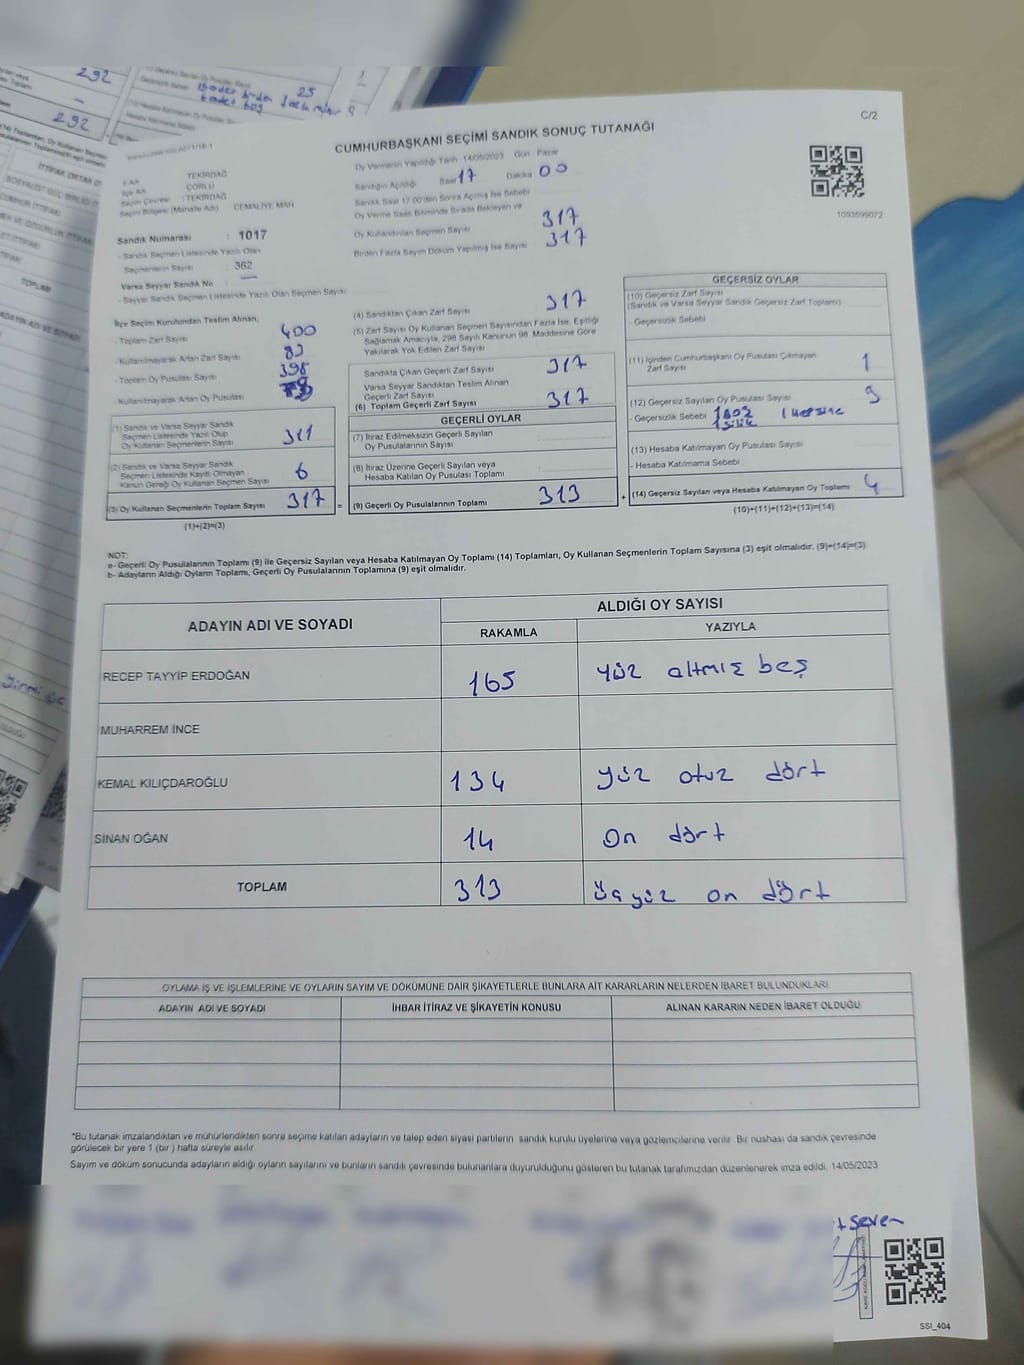 292
292
25
C/2
CUMHURBAŞKANI SEÇİMİ SANDIK SONUÇ TUTANAĞI
Oy Vermenin Yapıldığı Tarih : 14/05/2023 Gün : Pazar
Sandığın Açıldığı Saat 17 Dakika 00
Sandık Saat 17:00'den Sonra Açılmış İse Sebebi
Oy Verme Saati Bitiminde Sırada Bekleyen ve
Oy Kullandırılan Seçmen Sayısı 317
Birden Fazla Sayım Döküm Yapılmış İse Sayısı 317
1093599072
İl Adı : TEKİRDAĞ
İlçe Adı : ÇORLU
Seçim Çevresi : TEKİRDAĞ
Seçim Bölgesi (Mahalle Adı) : CEMALİYE MAH
Sandık Numarası : 1017
- Sandık Seçmen Listesinde Yazılı Olan
Seçmenlerin Sayısı : 362
Varsa Seyyar Sandık No : —
- Seyyar Sandık Seçmen Listesinde Yazılı Olan Seçmen Sayısı
İlçe Seçim Kurulundan Teslim Alınan,
- Toplam Zarf Sayısı 400
- Kullanılmayarak Artan Zarf Sayısı 83
- Toplam Oy Pusulası Sayısı 395
- Kullanılmayarak Artan Oy Pusulası
(1) Sandık ve Varsa Seyyar Sandık
Seçmen Listesinde Yazılı Olup
Oy Kullanan Seçmenlerin Sayısı 311
(2) Sandık ve Varsa Seyyar Sandık
Seçmen Listesinde Kayıtlı Olmayan
Kanun Gereği Oy Kullanan Seçmen Sayısı 6
(3) Oy Kullanan Seçmenlerin Toplam Sayısı 317 =
(1)+(2)=(3)
(4) Sandıktan Çıkan Zarf Sayısı 317
(5) Zarf Sayısı Oy Kullanan Seçmen Sayısından Fazla İse, Eşitliği
Sağlamak Amacıyla, 298 Sayılı Kanunun 98. Maddesine Göre
Yakılarak Yok Edilen Zarf Sayısı
Sandıkta Çıkan Geçerli Zarf Sayısı 317
Varsa Seyyar Sandıktan Teslim Alınan
Geçerli Zarf Sayısı
(6) Toplam Geçerli Zarf Sayısı 317
GEÇERLİ OYLAR
(7) İtiraz Edilmeksizin Geçerli Sayılan
Oy Pusulalarının Sayısı
(8) İtiraz Üzerine Geçerli Sayılan veya
Hesaba Katılan Oy Pusulası Toplamı
(9) Geçerli Oy Pusulalarının Toplamı 313 +
GEÇERSİZ OYLAR
(10) Geçersiz Zarf Sayısı
(Sandık ve Varsa Seyyar Sandık Geçersiz Zarf Toplamı)
- Geçersizlik Sebebi
(11) İçinden Cumhurbaşkanı Oy Pusulası Çıkmayan
Zarf Sayısı 1
(12) Geçersiz Sayılan Oy Pusulası Sayısı 3
- Geçersizlik Sebebi
(13) Hesaba Katılmayan Oy Pusulası Sayısı
- Hesaba Katılmama Sebebi
(14) Geçersiz Sayılan veya Hesaba Katılmayan Oy Toplamı 4
(10)+(11)+(12)+(13)=(14)
NOT:
a- Geçerli Oy Pusulalarının Toplamı (9) ile Geçersiz Sayılan veya Hesaba Katılmayan Oy Toplamı (14) Toplamları, Oy Kullanan Seçmenlerin Toplam Sayısına (3) eşit olmalıdır. (9)+(14)=(3)
b- Adayların Aldığı Oyların Toplamı, Geçerli Oy Pusulalarının Toplamına (9) eşit olmalıdır.
ADAYIN ADI VE SOYADI
ALDIĞI OY SAYISI
RAKAMLA YAZIYLA
RECEP TAYYİP ERDOĞAN 165 yüz altmış beş
MUHARREM İNCE
KEMAL KILIÇDAROĞLU 134 yüz otuz dört
SİNAN OĞAN 14 on dört
TOPLAM 313 üçyüz on dört
OYLAMA İŞ VE İŞLEMLERİNE VE OYLARIN SAYIM VE DÖKÜMÜNE DAİR ŞİKAYETLERLE BUNLARA AİT KARARLARIN NELERDEN İBARET BULUNDUKLARI
ADAYIN ADI VE SOYADI İHBAR İTİRAZ VE ŞİKAYETİN KONUSU ALINAN KARARIN NEDEN İBARET OLDUĞU
*Bu tutanak imzalandıktan ve mühürlendikten sonra seçime katılan adayların ve talep eden siyasi partilerin sandık kurulu üyelerine veya gözlemcilerine verilir. Bir nüshası da sandık çevresinde
görülecek bir yere 1 (bir) hafta süreyle asılır.
Sayım ve döküm sonucunda adayların aldığı oyların sayılarını ve bunların sandık çevresinde bulunanlara duyurulduğunu gösteren bu tutanak tarafımızdan düzenlenerek imza edildi. 14/05/2023
t Seven
SSİ_404